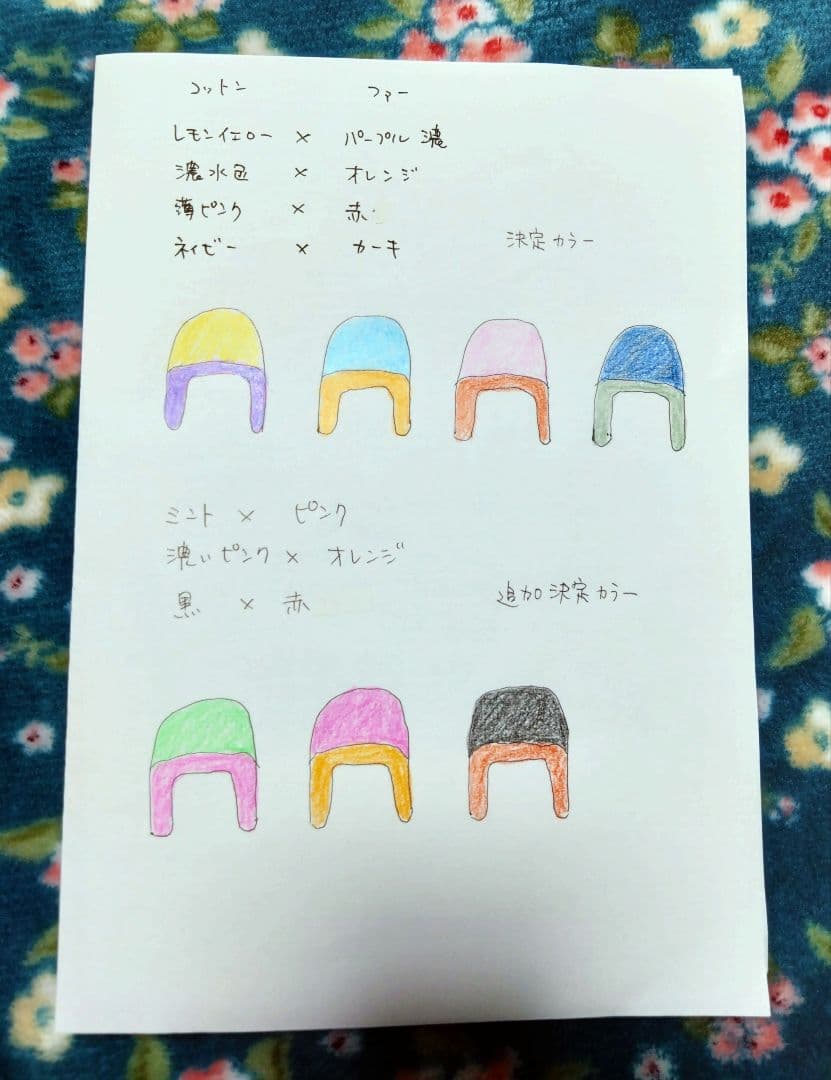 コットン ファー
レモンイエロー × パープル 濃
濃水色 × オレンジ
薄ピンク × 赤
ネイビー × カーキ
決定カラー
ミント × ピンク
濃いピンク × オレンジ
黒 × 赤
追加決定カラー